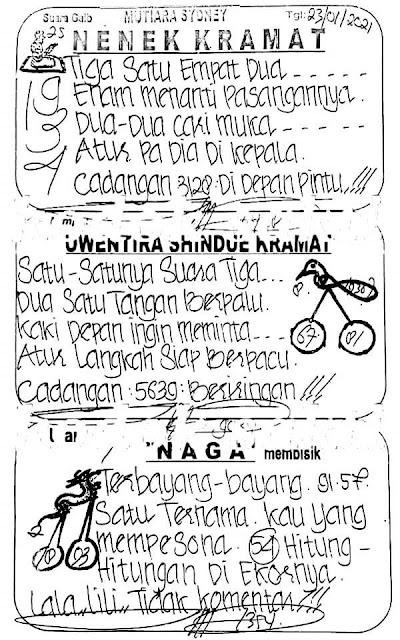 Suara Gaib MUTIARA SYDNEY Tgl: 23/01/2021
25 NENEK KRAMAT
Tiga Satu Empat Dua _ _ _ _ _
Enam menanti Pasangannya.
Dua-Dua caki muka _ _ _ _ _
Atur Pa Dia Di Kepala.
Cadangan 3128. Di Depan Pintu,,!!!
UWENTIRA SHINDUE KRAMAT
Satu-Satunya Suara Tiga...
Dua Satu Tangan Berpalu.
Kaki Depan ingin meminta _ _ _
Atur Langkah Siap Berpacu.
Cadangan : 5639 : Beriringan !!!
67 81
"NAGA" membisik
Terbayang-bayang. 91.57.
Satu Ternama. Kau yang
mempesona. 54 Hitung-
Hitungan Di Ekornya.
03
Lala,, Lili,, Tidak Komentar !!!